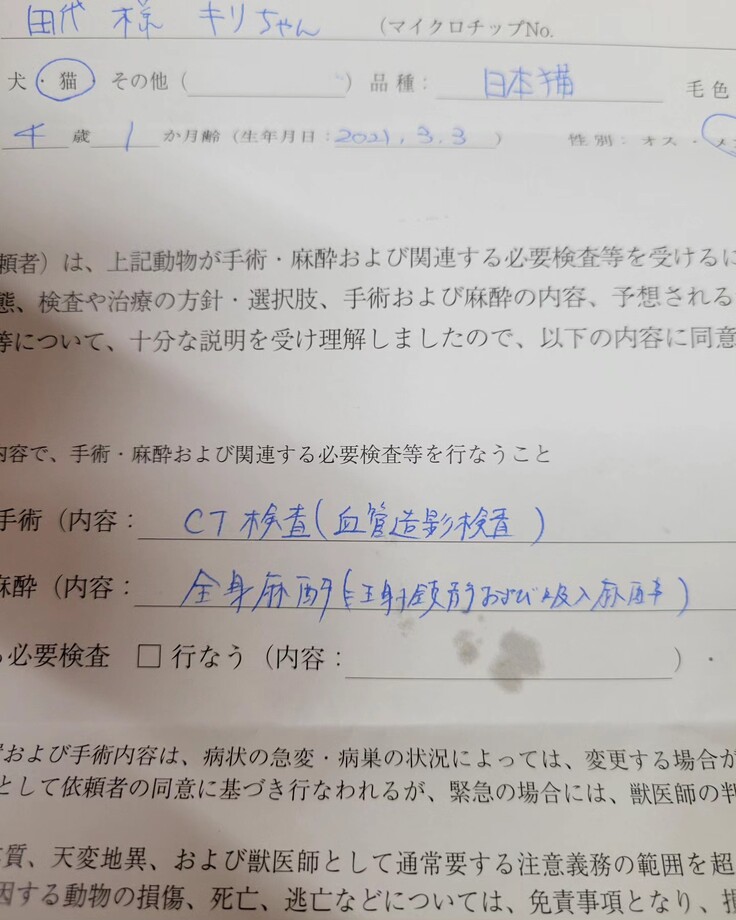 田代 様 キリちゃん (マイクロチップNo.
犬・猫 その他( ) 品種: 日本猫 毛色
4歳1か月齢(生年月日:2021.3.3) 性別:オス・メ
頼者)は、上記動物が手術・麻酔および関連する必要検査等を受けるに
態、検査や治療の方針・選択肢、手術および麻酔の内容、予想される
等について、十分な説明を受け理解しましたので、以下の内容に同意
内容で、手術・麻酔および関連する必要検査等を行なうこと
手術(内容: CT検査(血管造影検査)
麻酔(内容: 全身麻酔(注射鎮静および吸入麻酔)
る必要検査 □行なう(内容: )・
および手術内容は、病状の急変・病巣の状況によっては、変更する場合が
として依頼者の同意に基づき行なわれるが、緊急の場合には、獣医師の判
質、天変地異、および獣医師として通常要する注意義務の範囲を超
因する動物の損傷、死亡、逃亡などについては、免責事項となり、損